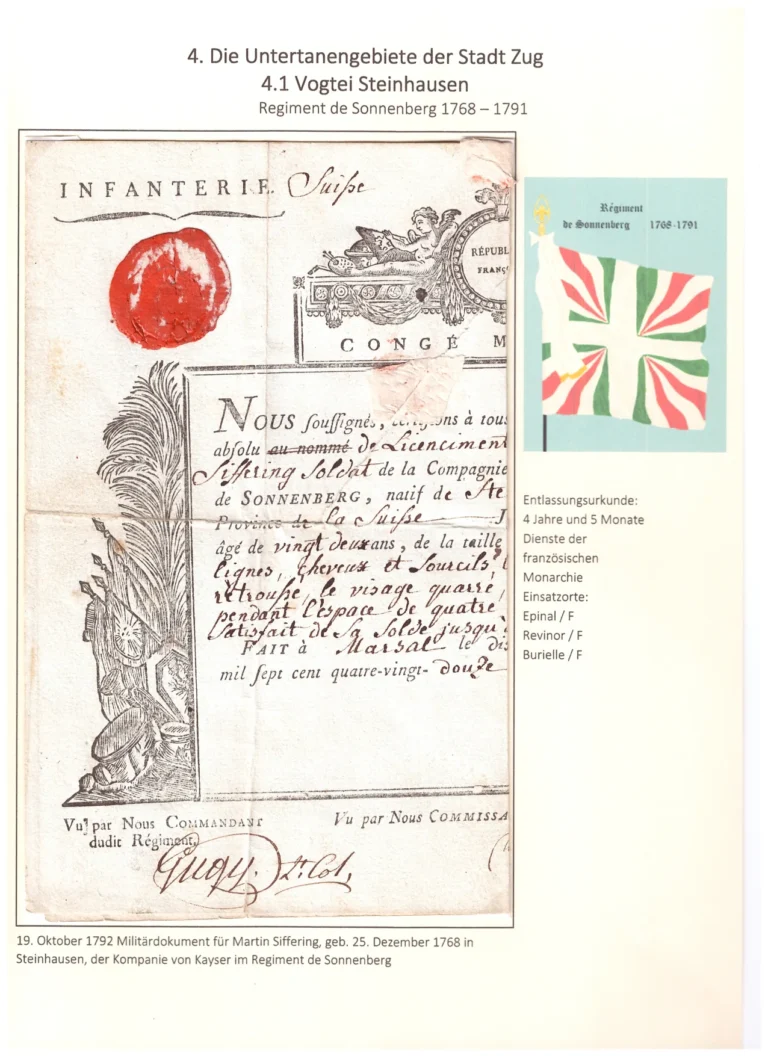 4. Die Untertanengebiete der Stadt Zug
4.1 Vogtei Steinhausen
Regiment de Sonnenberg 1768 – 1791
INFANTERIE. Suiſse
RÉPUBL
FRANÇ
CONGÉ M
Régiment
de Sonnenberg 1768-1791
NOUS ſouſſignés, ons à tous
abſolu au nommé de Licenciment
Siffering Soldat de la Compagnie
de SONNENBERG, natif de Ste
Province de la Suiſse J
âgé de vingt deux ans, de la taille
lignes, cheveux et Sourcils,
rétrouſse, le visage quarré,
pendant l'eſpace de quatre
Satisfait de Sa Solde jusqu'
FAIT à Marsal le dis
mil ſept cent quatre-vingt- douze
Vu par Nous COMMANDANT
dudit Régiment,
Vu par Nous COMMISSA
Gugy. Lt. Col,
Entlassungsurkunde:
4 Jahre und 5 Monate
Dienste der
französischen
Monarchie
Einsatzorte:
Epinal / F
Revinor / F
Burielle / F
19. Oktober 1792 Militärdokument für Martin Siffering, geb. 25. Dezember 1768 in
Steinhausen, der Kompanie von Kayser im Regiment de Sonnenberg